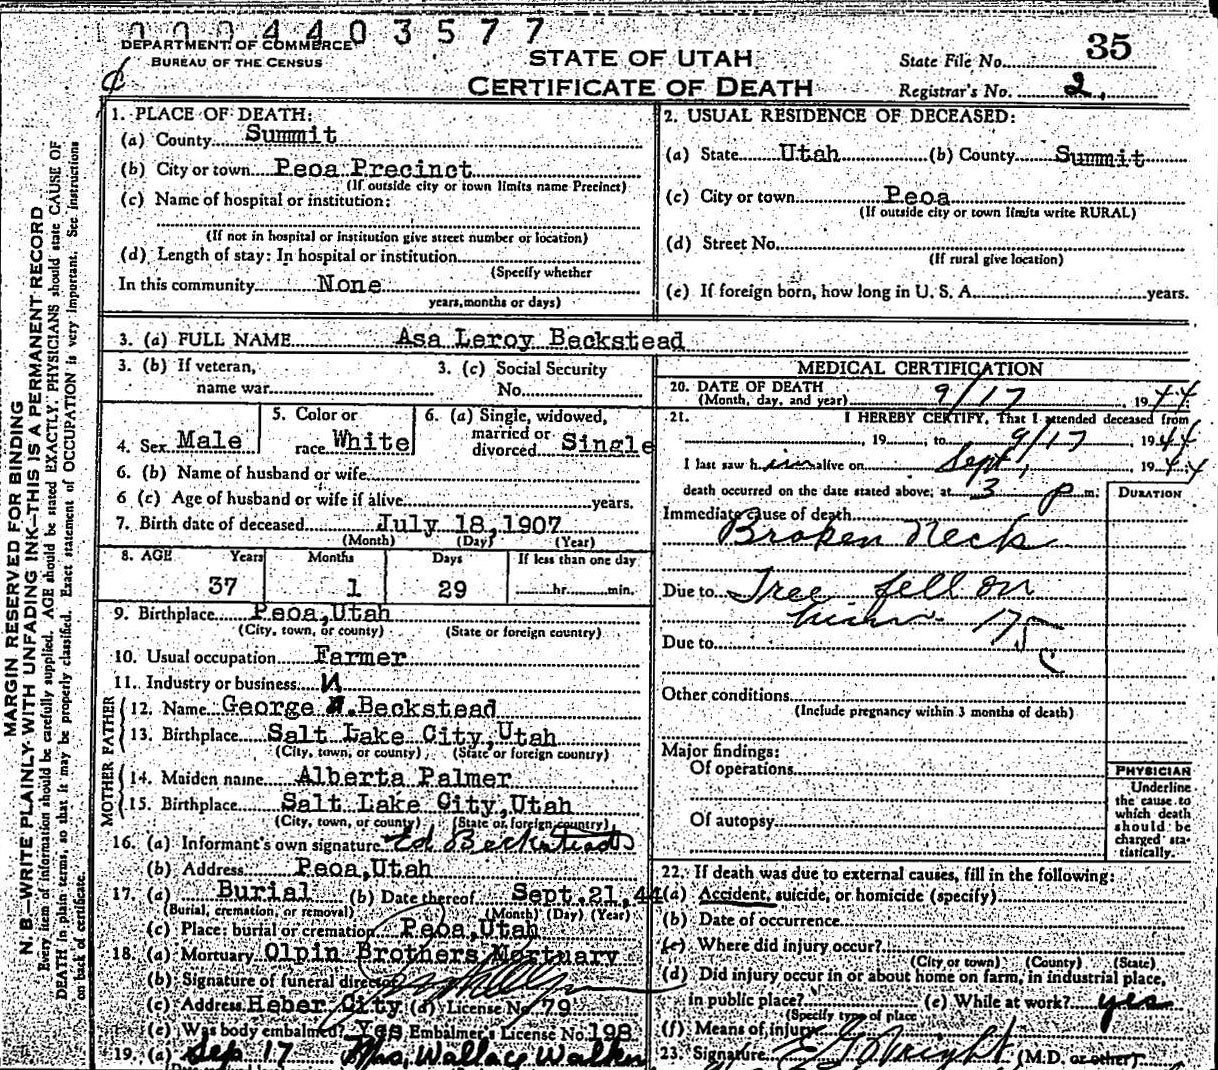 0004403577
DEPARTMENT OF COMMERCE
BUREAU OF THE CENSUS
STATE OF UTAH
CERTIFICATE OF DEATH
State File No. 35
Registrar's No. 2.
MARGIN RESERVED FOR BINDING
N. B.—WRITE PLAINLY WITH UNFADING INK—THIS IS A PERMANENT RECORD
Every item of information should be carefully supplied. AGE should be stated EXACTLY. PHYSICIANS should state CAUSE OF
DEATH in plain terms, so that it may be properly classified. Exact statement of OCCUPATION is very important. See instructions
on back of certificate.
1. PLACE OF DEATH:
(a) County Summit
(b) City or town Peoa Precinct
(If outside city or town limits name Precinct)
(c) Name of hospital or institution:
(If not in hospital or institution give street number or location)
(d) Length of stay: In hospital or institution
(Specify whether
In this community None
years, months or days)
2. USUAL RESIDENCE OF DECEASED:
(a) State Utah (b) County Summit
(c) City or town Peoa
(If outside city or town limits write RURAL)
(d) Street No.
(If rural give location)
(e) If foreign born, how long in U. S. A. years.
3. (a) FULL NAME Asa Leroy Backstead
3. (b) If veteran, name war
3. (c) Social Security No.
4. Sex Male
5. Color or race White
6. (a) Single, widowed, married or divorced Single
6. (b) Name of husband or wife
6 (c) Age of husband or wife if alive years.
7. Birth date of deceased July 18, 1907
(Month) (Day) (Year)
8. AGE Years Months Days If less than one day
37 1 29 hr. min.
9. Birthplace Peoa, Utah
(City, town, or county) (State or foreign country)
10. Usual occupation Farmer
11. Industry or business
FATHER
12. Name George Beckstead
13. Birthplace Salt Lake City, Utah
(City, town, or county) (State or foreign country)
MOTHER
14. Maiden name Alberta Palmer
15. Birthplace Salt Lake City, Utah
(City, town, or county) (State or foreign country)
16. (a) Informant's own signature Ed Beckstead
(b) Address Peoa, Utah
17. (a) Burial (b) Date thereof Sept. 21, 44
(Burial, cremation, or removal) (Month) (Day) (Year)
(c) Place: burial or cremation Peoa, Utah
18. (a) Mortuary Olpin Brothers Mortuary
(b) Signature of funeral director
(c) Address Heber City (d) License No. 79
(e) Was body embalmed? Yes Embalmer's License No. 198
19. (a) Sep 17 Mrs. Wallace Walker
MEDICAL CERTIFICATION
20. DATE OF DEATH
(Month, day, and year) 9/17, 1944
21. I HEREBY CERTIFY, That I attended deceased from
, 19 , to 9/17, 1944
I last saw him alive on Sept, 1944
death occurred on the date stated above, at 3 p m.
DURATION
Immediate cause of death
Broken Neck
Due to Tree fell on
him. 175
Due to c
Other conditions
(Include pregnancy within 3 months of death)
Major findings:
Of operations
Of autopsy
PHYSICIAN
Underline
the cause to
which death
should be
charged sta-
tistically.
22. If death was due to external causes, fill in the following:
(a) Accident, suicide, or homicide (specify)
(b) Date of occurrence
(c) Where did injury occur?
(City or town) (County) (State)
(d) Did injury occur in or about home on farm, in industrial place,
in public place? (e) While at work? yes
(Specify type of place
(f) Means of injury
23. Signature E G Wright (M.D. or other)